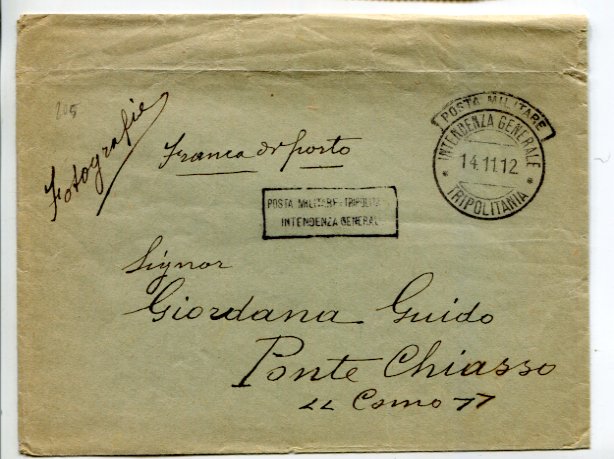 205
Fotografie
Franca di porto
POSTA MILITARE
INTENDENZA GENERALE
14.11.12
* TRIPOLITANIA *
POSTA MILITARE - TRIPOLI
INTENDENZA GENERAL
Signor
Giordana Guido
Ponte Chiasso
" Como "